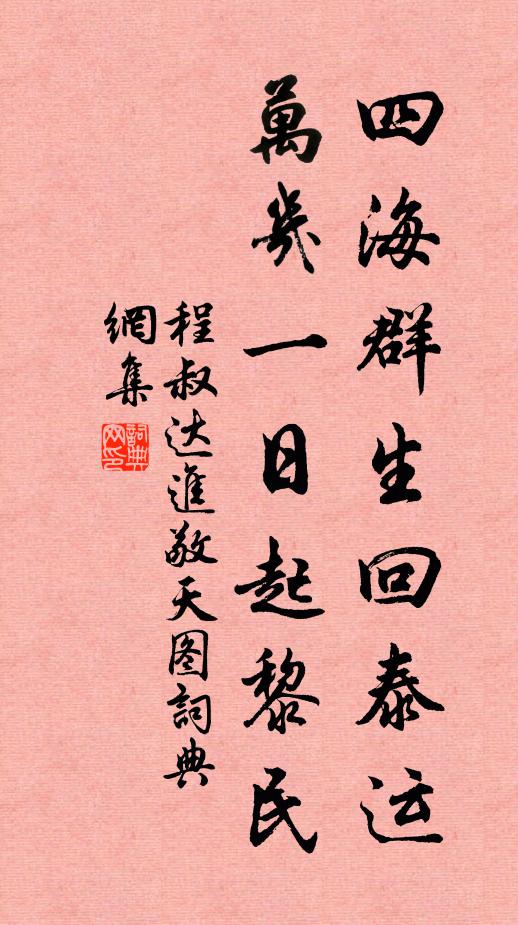 四海群生回泰运
萬幾一日起黎民
程叔达進敬天图詞典
網集
詞典
网印